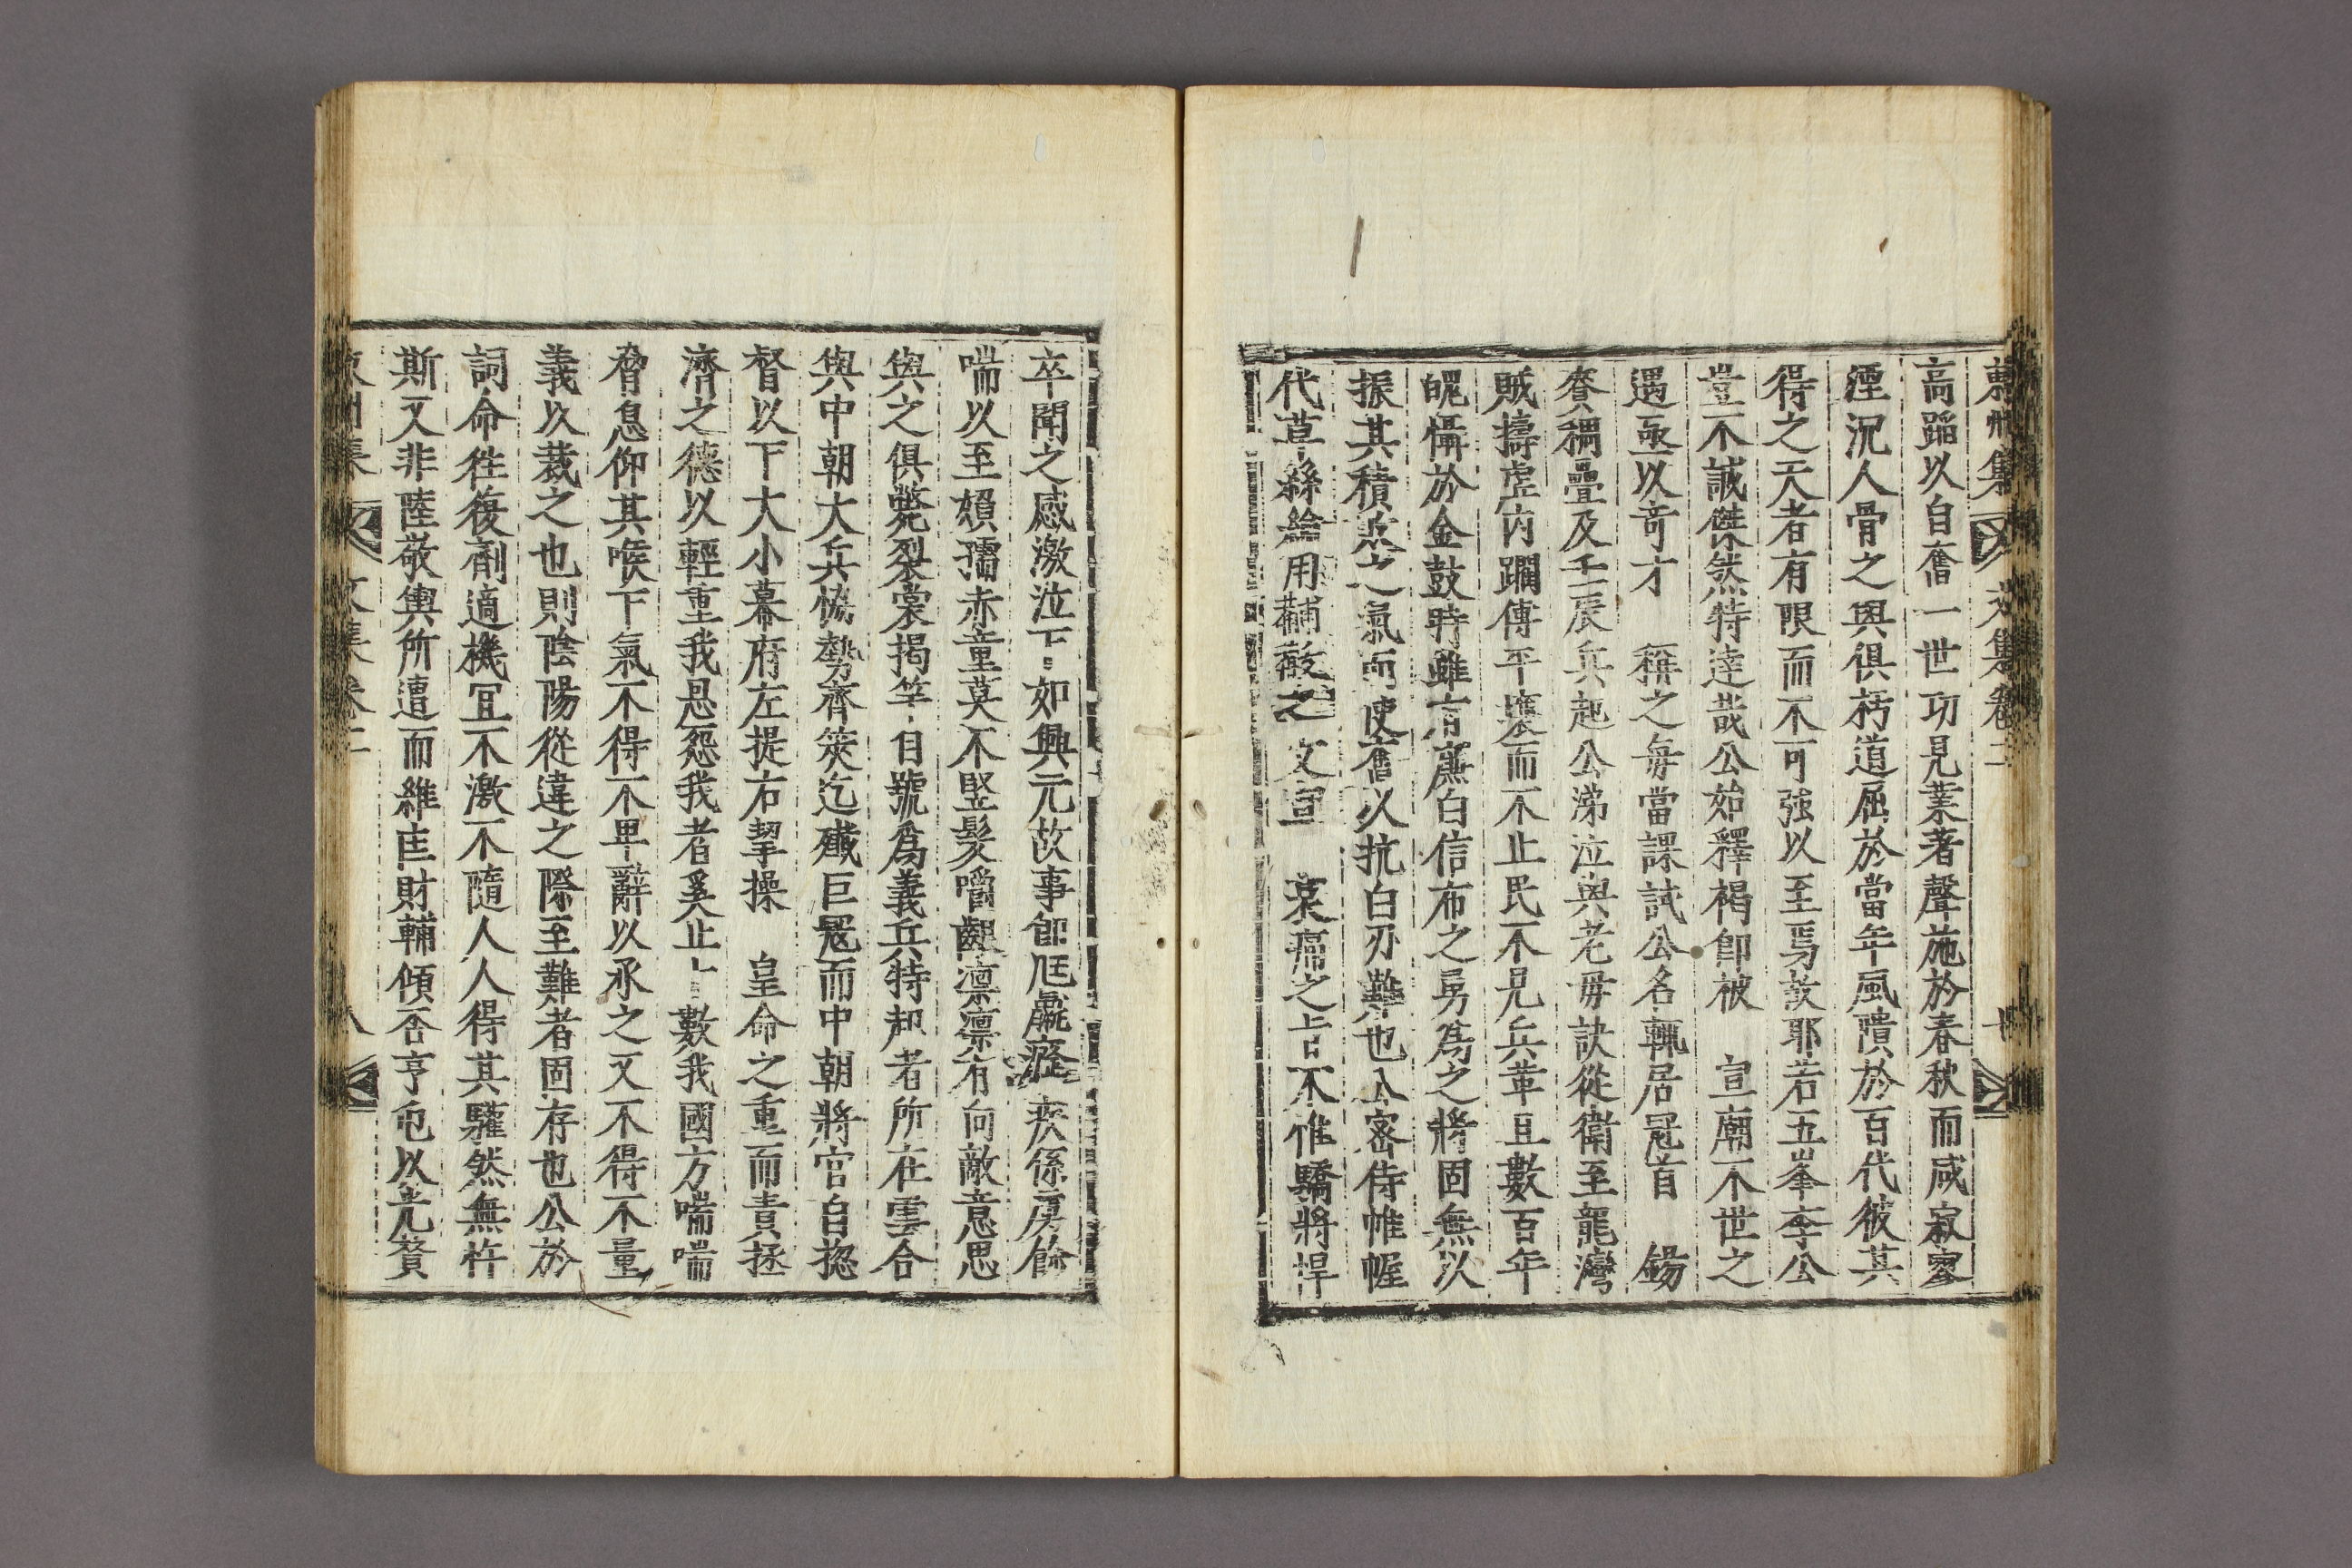 東州集 文集卷二 七
高蹈以自奮一世功見業著聲施於春秋而咸寂寥
湮沉人骨之與俱朽道屈於當年風隤於百代彼其
得之天者有限而不可強以至焉故耶若五峯李公
豈不誠傑然特達哉公始釋褐卽被 宣廟不世之
遇亟以奇才 稱之每當課試公名輒居冠首 錫
賚稠疊及壬辰兵起公涕泣與老母訣從衛至龍灣
賊擣虛內躪傅平壤而不止民不見兵革且數百年
皅慴於金鼓時雖有廉白信布之勇爲之將固無以
振其積恧之氣而使奮以抗白刃難也公密侍帷幄
代草絲綸用黼黻之文宣 哀痛之旨不惟驕將悍
卒聞之感激泣下如興元故事卽尫羸癃疾係虜餘
喘以至嬬孺赤童莫不竪髮嚼齦凛凛有向敵意思
與之俱斃裂裳揭竿自號爲義兵特起者所在雲合
與中朝大兵恊勢齊筴迄殲巨冦而中朝將官自揔
督以下大小幕府左提右挈操 皇命之重而責拯
濟之德以輕重我恩怨我者奚止數我國方喘喘
脅息仰其喉下氣不得不畢辭以承之又不得不量
義以裁之也則陰陽從違之際至難者固存也公於
詞命徃復劑適機冝不激不隨人人得其驩然無忤
斯又非陸敬輿所遭而維匡財輔傾否亨屯以光贊
東州集 文集卷二 八